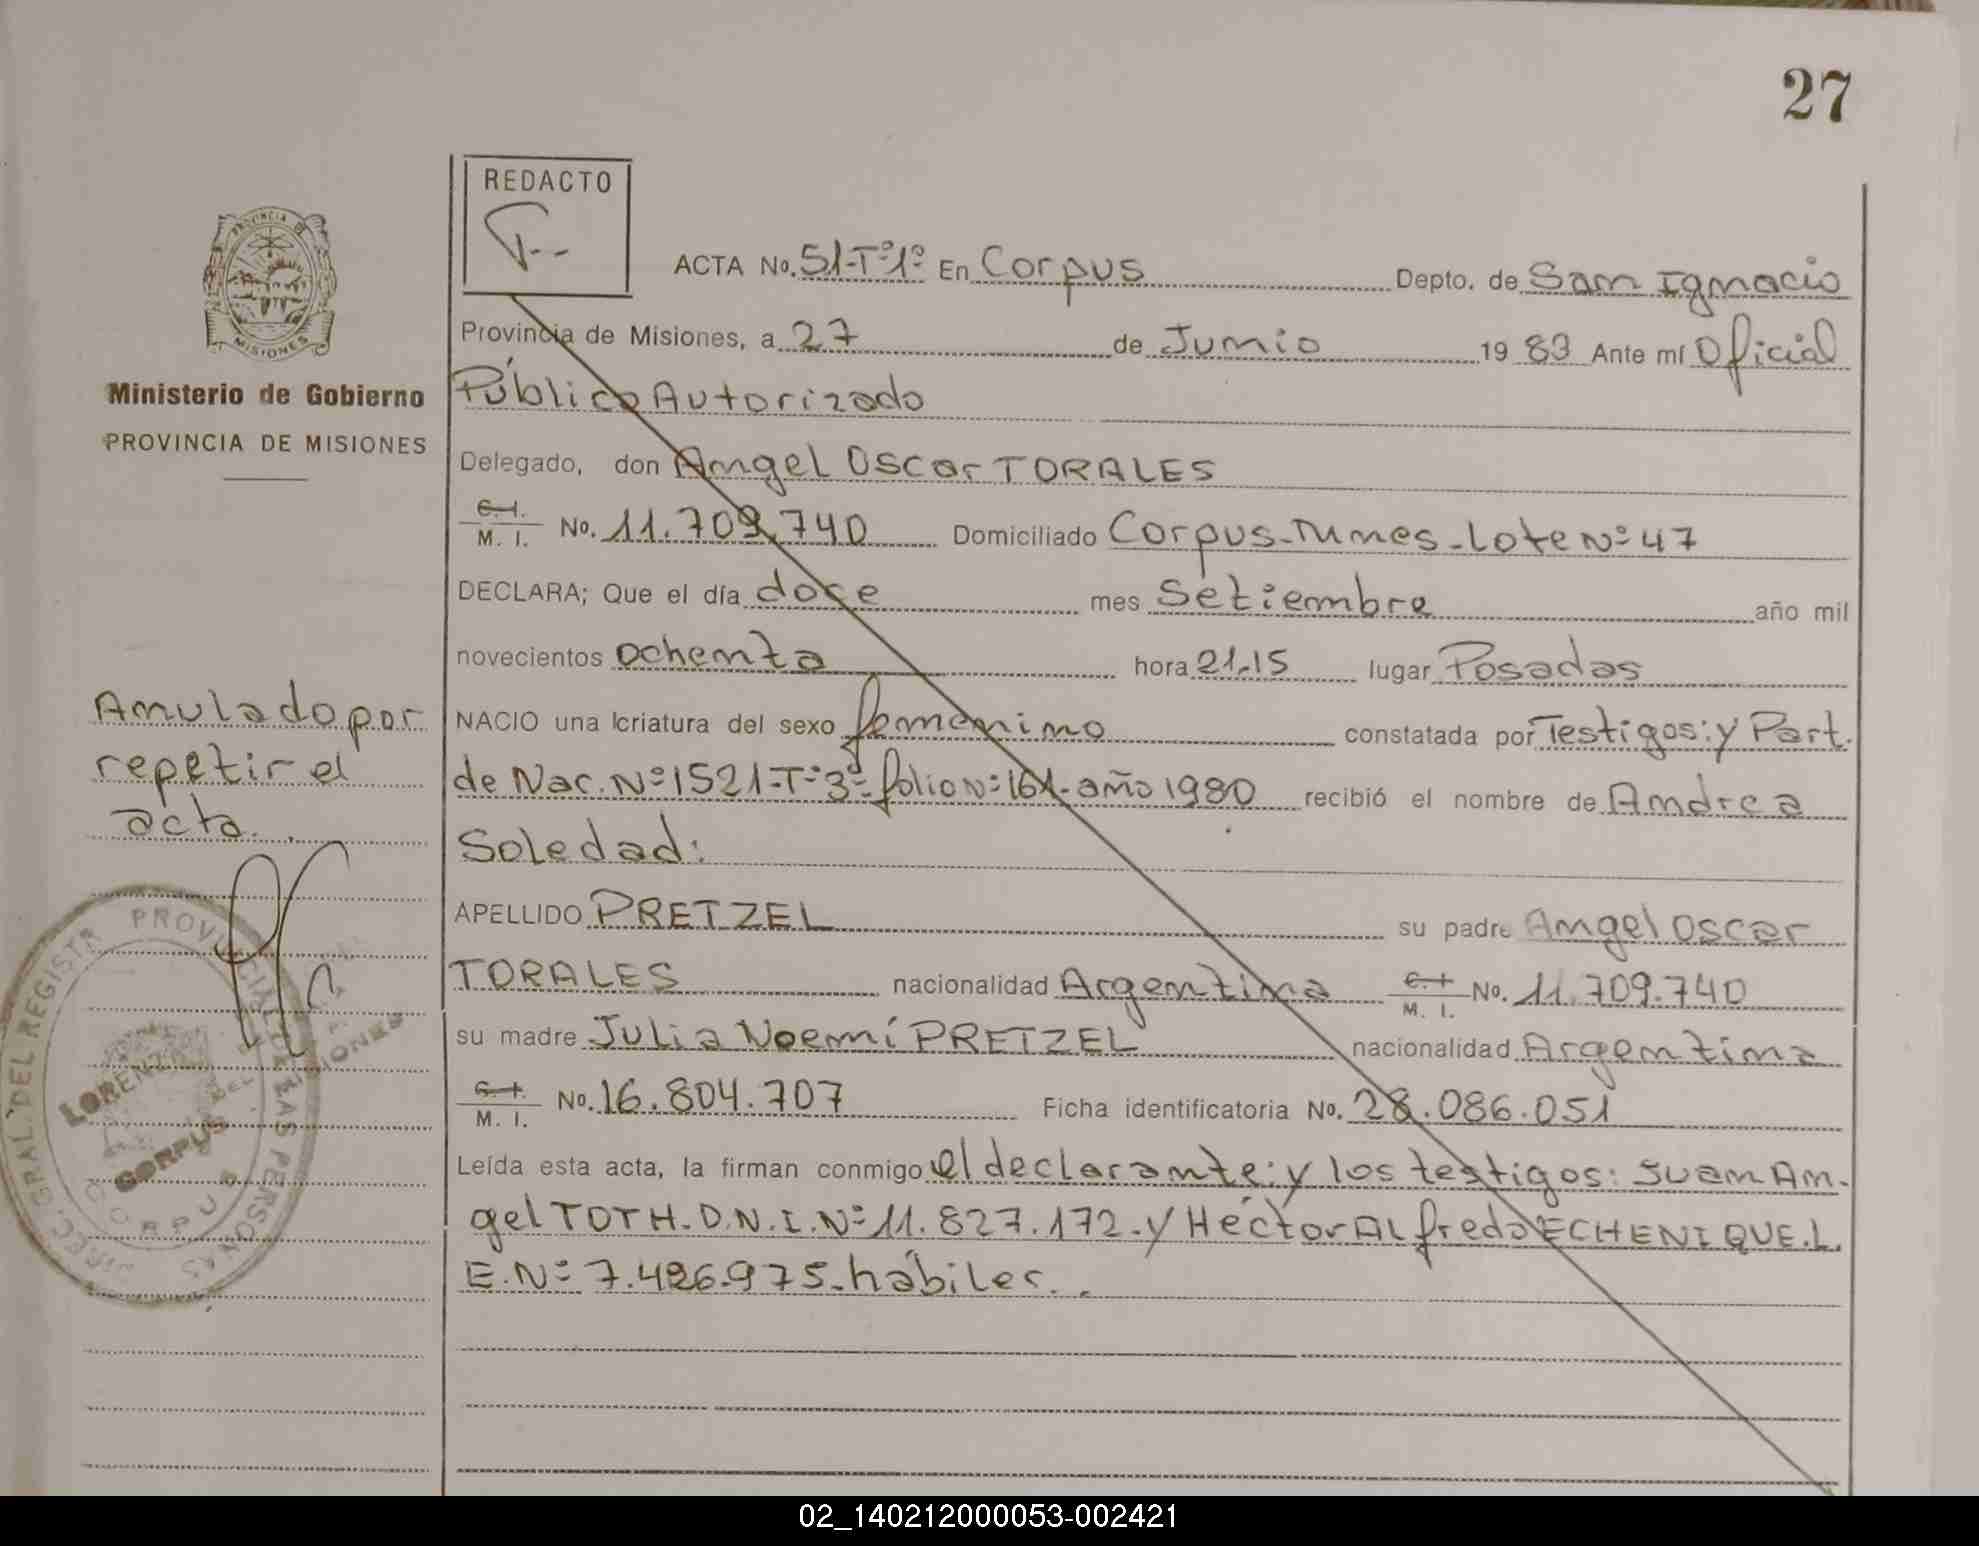 27
REDACTO
ACTA No. 51-Tº1º En Corpus Depto. de San Ignacio
Provincia de Misiones, a 27 de Junio 1983 Ante mí Oficial
Público Autorizado
Delegado, don Angel Oscar TORALES
C. I.
M. I. No. 11.709.740 Domiciliado Corpus-Tunes-Lote Nº 47
DECLARA; Que el día doce mes Setiembre año mil
novecientos ochenta hora 21,15 lugar Posadas
NACIO una criatura del sexo femenino constatada por Testigos: y Part.
de Nac. Nº 1521-Tº3º folio Nº 161- año 1980 recibió el nombre de Andrea
Soledad:
APELLIDO PRETZEL su padre Angel Oscar
TORALES nacionalidad Argentina C. I. M. I. No. 11.709.740
su madre Julia Noemí PRETZEL nacionalidad Argentina
C. I.
M. I. No. 16.804.707 Ficha identificatoria No. 28.086.051
Leída esta acta, la firman conmigo el declarante: y los testigos: Juan An-
gel TOTH. D.N.I. Nº 11.827.172. y Héctor Alfredo ECHENIQUE. L.
E. Nº 7.486.975- hábiles..
PROVINCIA DE
MISIONES
Ministerio de Gobierno
PROVINCIA DE MISIONES
Anulado por
repetir el
acta..
DIREC. GRAL. DEL REGISTR PROVINCIAL DE LAS PERSONAS
LORENZ
CORPUS
MISIONES
CORPUS
02_140212000053-002421